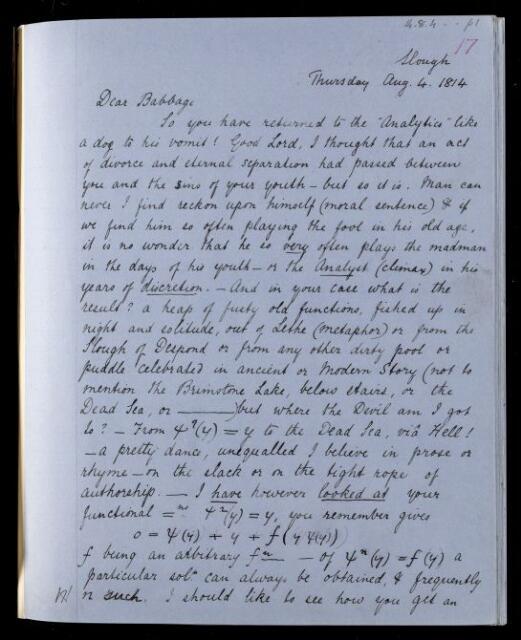 4.8.4 - - p1
17
Slough
Thursday Aug. 4. 1814
Dear Babbage
So you have returned to the "Analytics" like
a dog to his vomit! Good Lord, I thought that an act
of divorce and eternal separation had passed between
you and the sins of your youth – but so it is. Man can
never I find reckon upon himself (moral sentence) & if
we find him so often playing the fool in his old age,
it is no wonder that he so very often plays the madman
in the days of his youth – or the Analyst (climax) in his
years of discretion. – And in your case what is the
result? a heap of fusty old functions, fished up in
night and solitude, out of Lethe (metaphor) or from the
Slough of Despond or from any other dirty pool or
puddle celebrated in ancient or Modern Story (not to
mention the Brimstone Lake, below stairs, or the
Dead Sea, or ———) but where the Devil am I got
to? – From ψ²(y) = y to the Dead Sea, viâ Hell!
– a pretty dance, unequalled I believe in prose or
rhyme – on the slack or on the tight rope of
authorship. — I have however looked at your
functional =ⁿˢ ψ²(y) = y, you remember gives
0 = ψ(y) + y + f(y ψ(y))
f being an arbitrary fⁿ — of ψⁿ(y) = f(y) a
particular solⁿ can always be obtained, & frequently
n such. I should like to see how you get an